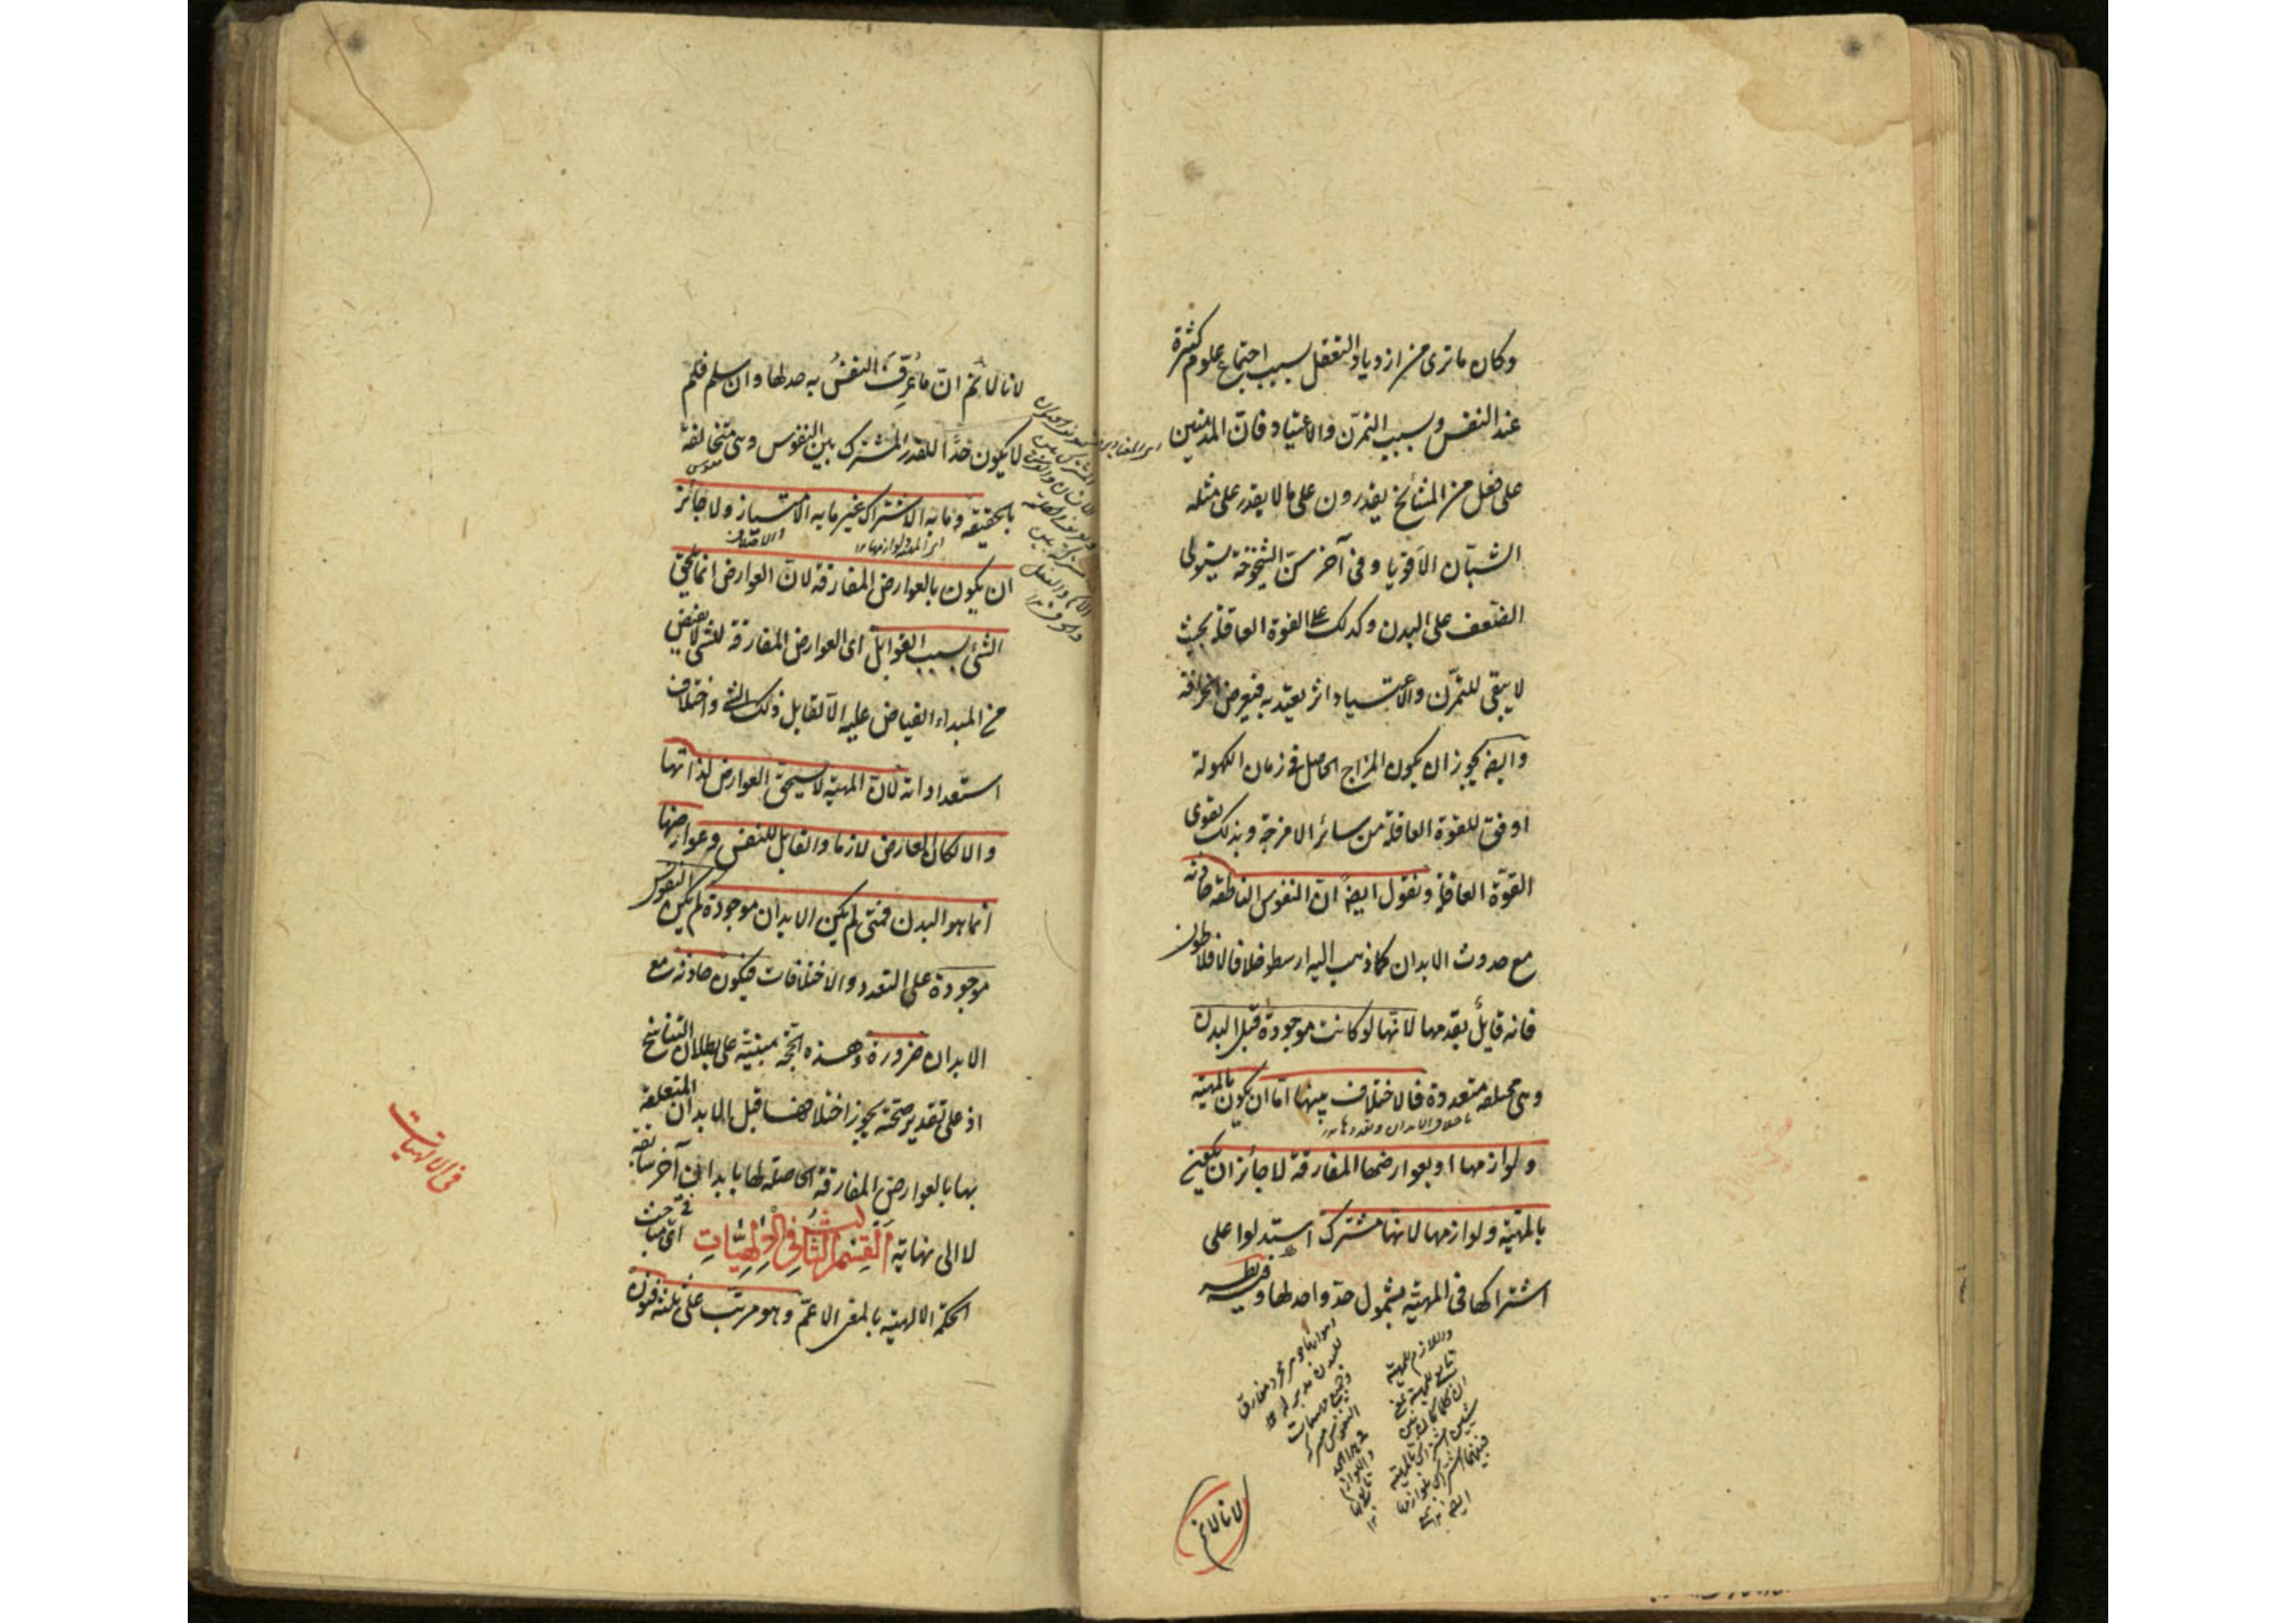 وكان ما ترى من ازدياد التعقل بسبب اجتماع علوم كثيرة
عند النفس وبسبب التمرّن والاعتياد فانّ المدمنين
على فعل من المشائخ يقدرون على ما لا يقدر على مثله
الشبّان الاقويا وفى آخر سنّ الشيخوخة يستولى
الضعف على البدن وكذلك على القوة العاقلة بحيث
لا يبقى للتمرّن والاعتياد اثر يعتدّ به فيعرض الخرافة
وايضا يجوز ان يكون المزاج الحاصل فى زمان الكهولة
اوفق للقوة العاقلة من سائر الامزجة وبذلك تقوى
القوّة العاقلة ونقول ايضا انّ النفوس الناطقة حادثة
مع حدوث الابدان كما ذهب اليه ارسطو خلافا لافلاطون
فانه قايل بقدمها لانّها لو كانت موجودة قبل البدن
وهى مختلفة متعددة فالاختلاف بينها امّا ان يكون بالمهية
ولوازمها او بعوارضها المفارقة لا جائز ان يكون
بالمهيّة ولوازمها لانّها مشترك استدلوا على
اشتراكها فى المهيّة بشمول حدّ واحد لها وفيه نظر
لانا لا نم
لانا لا نم انّ ما عُرِّفَ النفسُ به حد لها وان سلم فلم
لا يكون حدًّا للقدر المشترك بين النفوس وهى متخالفة
بالحقيقة وما به الاشتراك غير ما به الامتياز ولا جائز
ان يكون بالعوارض المفارقة لانّ العوارض انما تلحق
الشئ بسبب القوابل اى العوارض المفارقة للشئ لا يفيض
من المبداء الفياض عليه الّا لقابل ذلك الشئ واختلاف
استعداداته لانّ المهيّة لا تستحقّ العوارض لذاتها
والا لكان العارض لازما والقابل للنفس وعوارضها
انما هو البدن فمتى لم يكن الابدان موجودة لم يكن النفوس
موجودة على التعدد والاختلافات فيكون حادثة مع
الابدان ضرورة وهذه الحجّة مبنيّة على بطلان التناسخ
اذ على تقدير صحّته يجوز اختلافها قبل الابدان المتعلقة
بها بالعوارض المفارقة الحاصلة لها بابدان آخر سابقة
لا الى نهاية القِسْمُ الثّالِث فِى الاِلٰهِيّاتِ اى مباحث
الحكمة الالهيّة بالمعنى الاعمّ وهو مرتّب على ثلثة فنون
فى الالهيّات